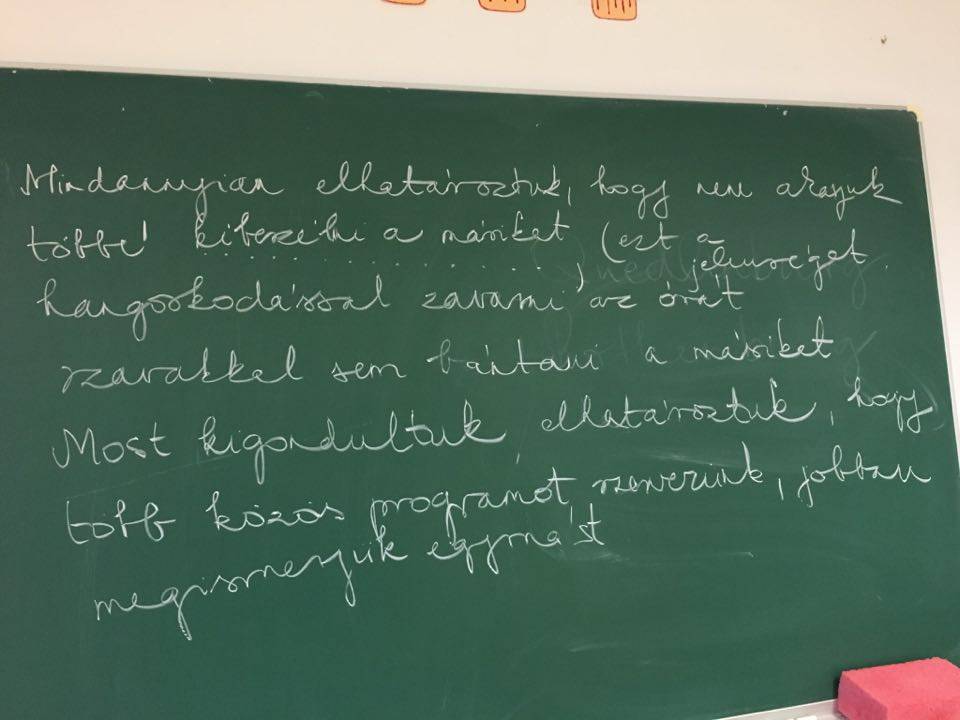 Mindannyian elhatároztuk, hogy nem akarjuk
többé kibeszélni a másikat (ezt a
jelenséget.
hangoskodással zavarni az órát
szavakkal sem bántani a másikat
Most kigondultuk, elhatároztuk, hogy
több közös programot szervezünk, jobban
megismerjük egymást